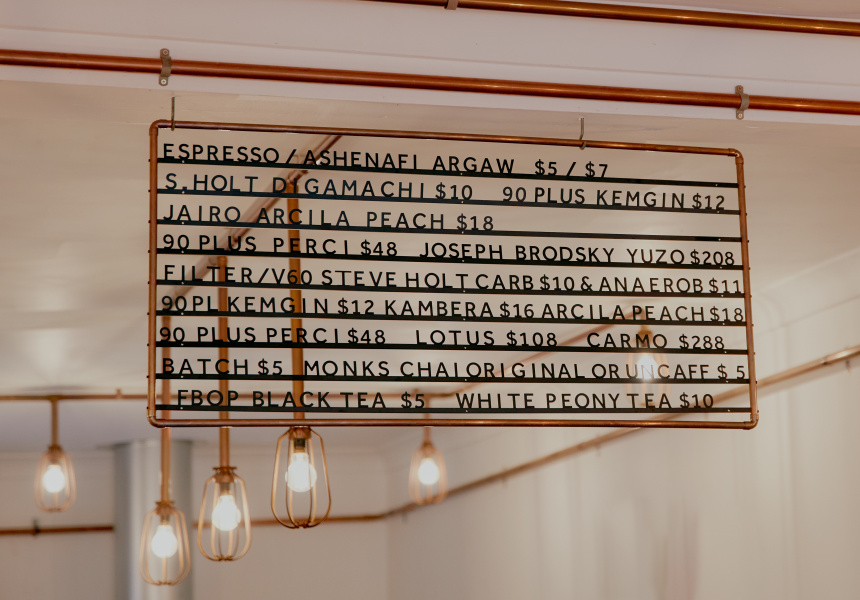 ESPRESSO / ASHENAFI ARGAW $5 / $7
S.HOLT DIGAMACHI $10 90 PLUS KEMGIN $12
JAIRO ARCILA PEACH $18
90 PLUS PERCI $48 JOSEPH BRODSKY YUZO $208
FILTER/V60 STEVE HOLT CARB $10 & ANAEROB $11
90PL KEMGIN $12 KAMBERA $16 ARCILA PEACH $18
90 PLUS PERCI $48 LOTUS $108 CARMO $288
BATCH $5 MONKS CHAI ORIGINAL OR UNCAFF $5
FBOP BLACK TEA $5 WHITE PEONY TEA $10